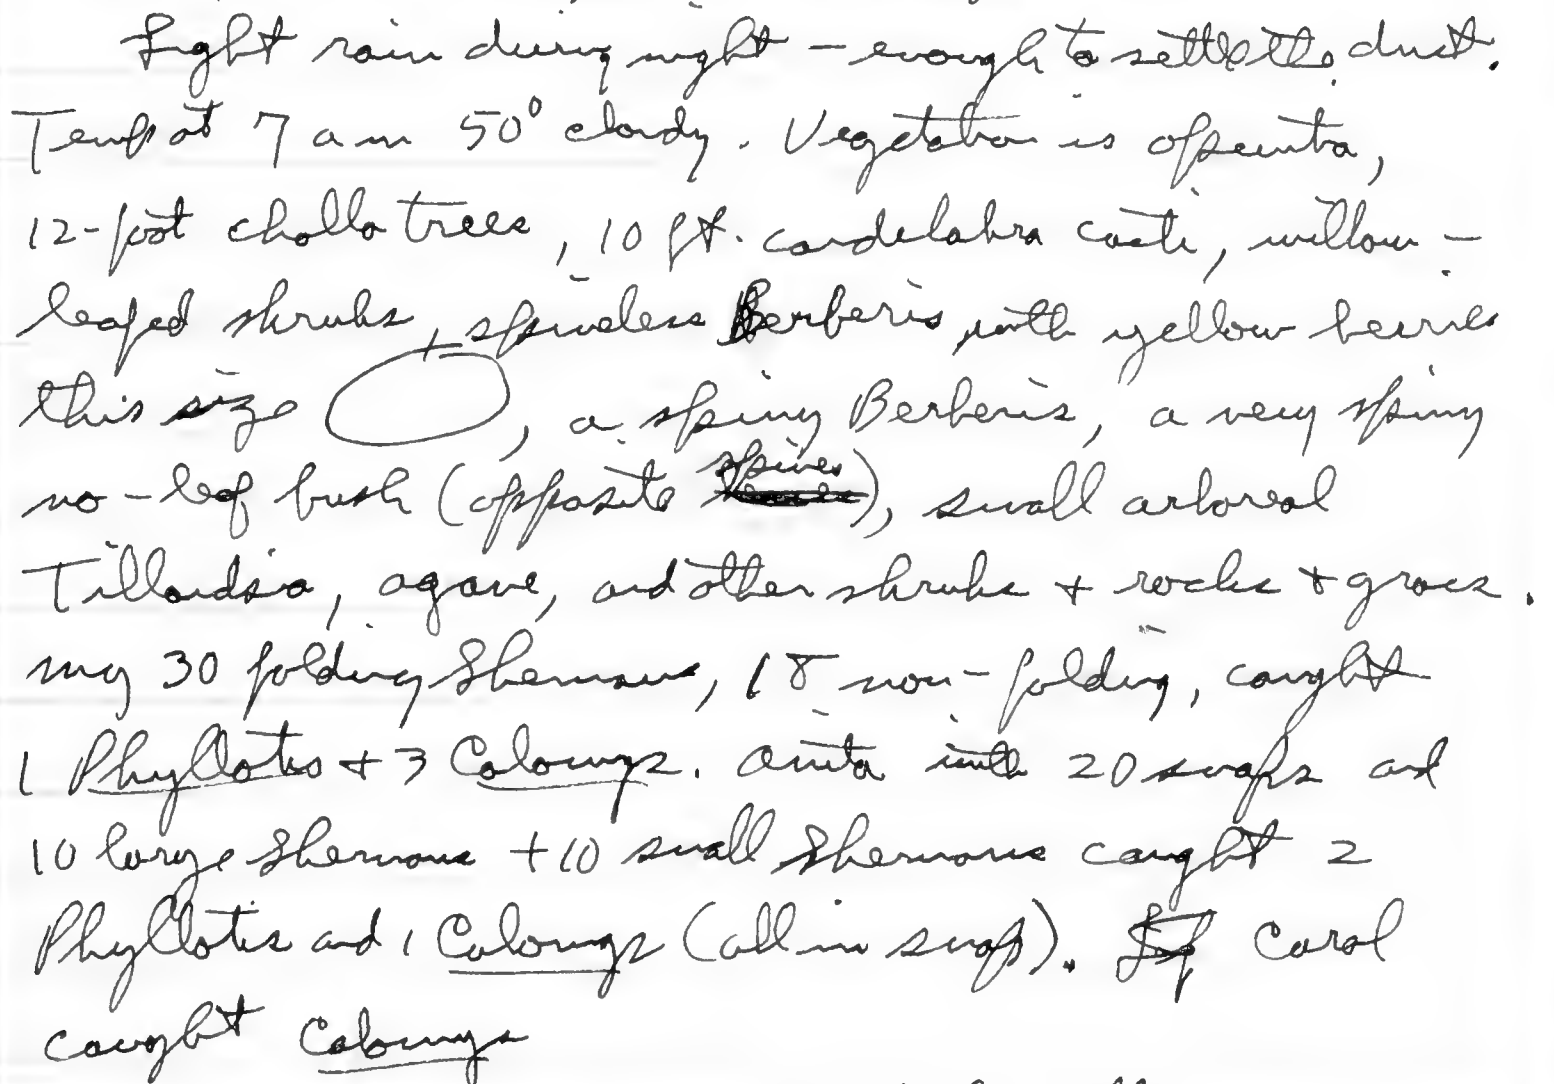 Light rain during night – enough to settle the dust.
Temp at 7 am 50° cloudy. Vegetation is opuntia,
12-foot cholla trees, 10 ft. candelabra cacti, willow-
leafed shrubs, spineless Berberis with yellow berries
this size , a spiny Berberis, a very spiny
no-leaf bush (opposite spines), small arboreal
Tillandsia, agave, and other shrubs + rocks + grass.
My 30 folding Shermans, 18 non-folding, caught
1 Phyllotis + 3 Calomys. Anita with 20 snaps and
10 large Shermans + 10 small Shermans caught 2
Phyllotis and 1 Calomys (all in snap). Carol
caught Calomys